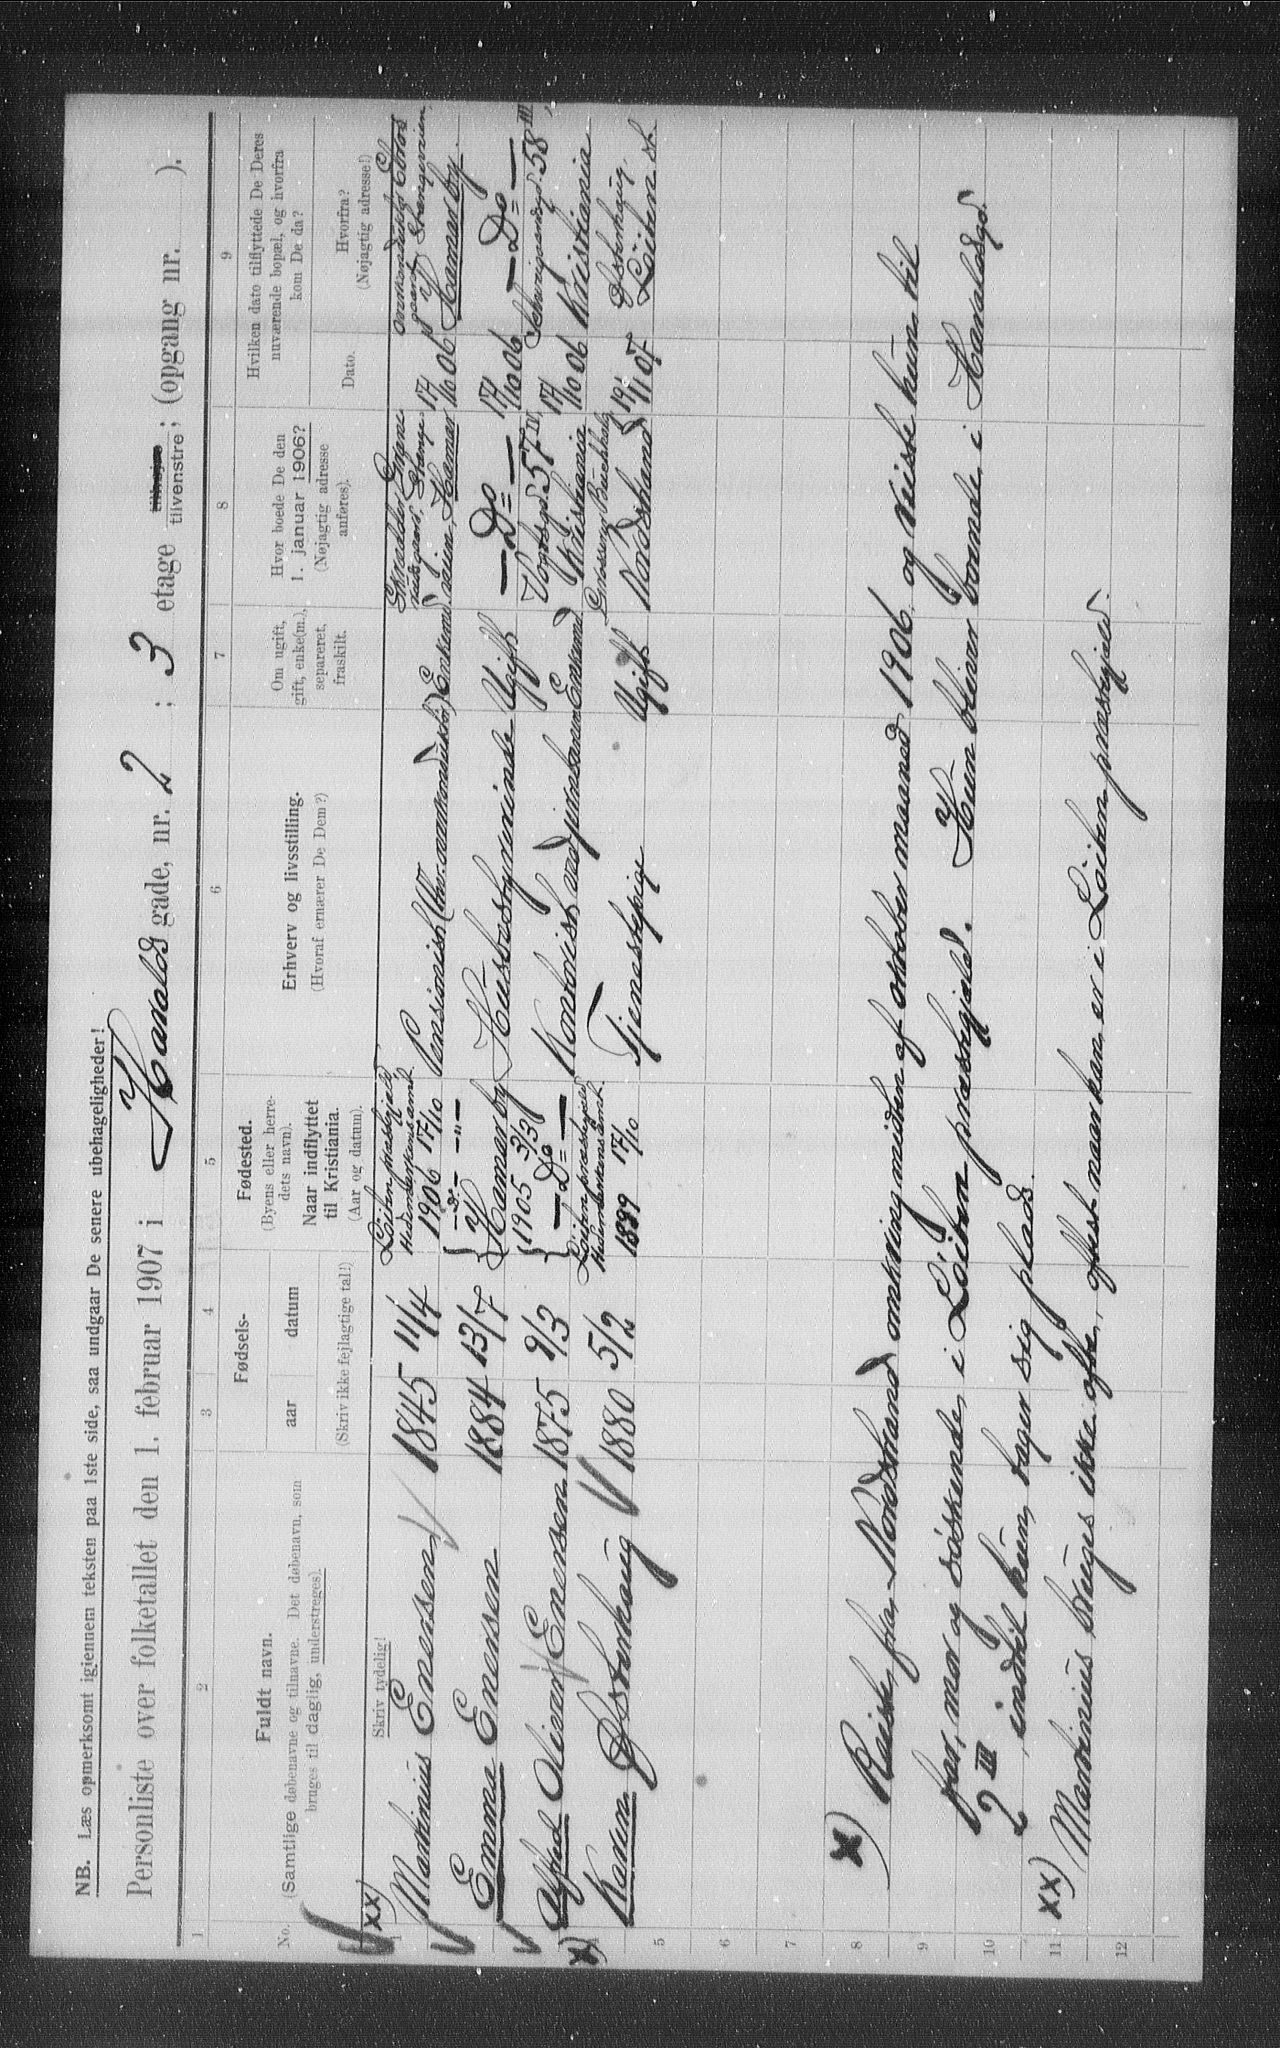 NB. Læs opmerksomt igjennem teksten paa 1ste side, saa undgaar De senere ubehageligheder!
Personliste over folketallet den 1. februar 1907 i Haralds gade, nr. 2 ; 3 etage tilhøjre tilvenstre ; (opgang nr. ).
1 2 3 4 5 6 7 8 9
No.
Fuldt navn.
(Samtlige døbenavne og tilnavne. Det døbenavn, som
bruges til daglig, understreges).
Skriv tydelig!
Fødsels-
aar datum
(Skriv ikke fejlagtige tal!)
Fødested.
(Byens eller herre-
dets navn).
Naar indflyttet
til Kristiania.
(Aar og datum).
Erhverv og livsstilling.
(Hvoraf ernærer De Dem?)
Om ugift,
gift, enke(m.),
separeret,
fraskilt.
Hvor boede De den
1. januar 1906?
(Nøjagtig adresse
anføres).
Hvilken dato tilflyttede De Deres
nuværende bopæl, og hvorfra
kom De da?
Dato.
Hvorfra?
(Nøjagtig adresse!)
xx)
1 Martinius Enersen 1845 11/4 Löiten præstegjeld Hedemarkens amt. 1906 17/10 Pensionist Enkemd. Hamar 17/10 06 Hamar by.
Emma Enersen 1884 13/7 Hamar by Husbestyrinde Ugift — Do — 17/10 06 — Do —
Alfred Olivar Enersen 1875 9/3 1905 3/3 — Do — Kontorist ved jernbanen Enkemd. 57 IV Kristiania 17/10 06 58 III Kristiania
x) 4 Karen Østerhaug 1880 5/2 Löiten præstegjeld Hedemarkens amt. 1899 17/10 Tjenestepige Ugift Nordstrand 19/1 07 Østerhaug, Löiten st.
5
6
7
8
9
10
11
12
x) Reiste fra Nordstrand omkring midten af oktober maaned 1906, og reiste hun til
far, mor og söskende, i Löiten præstegjeld. Hun bliver boende i Haraldsgd.
2 III, indtil hun tager sig plads.
xx) Martinius bruges ikke ofte, oftest naar han er i Löiten præstegjeld.